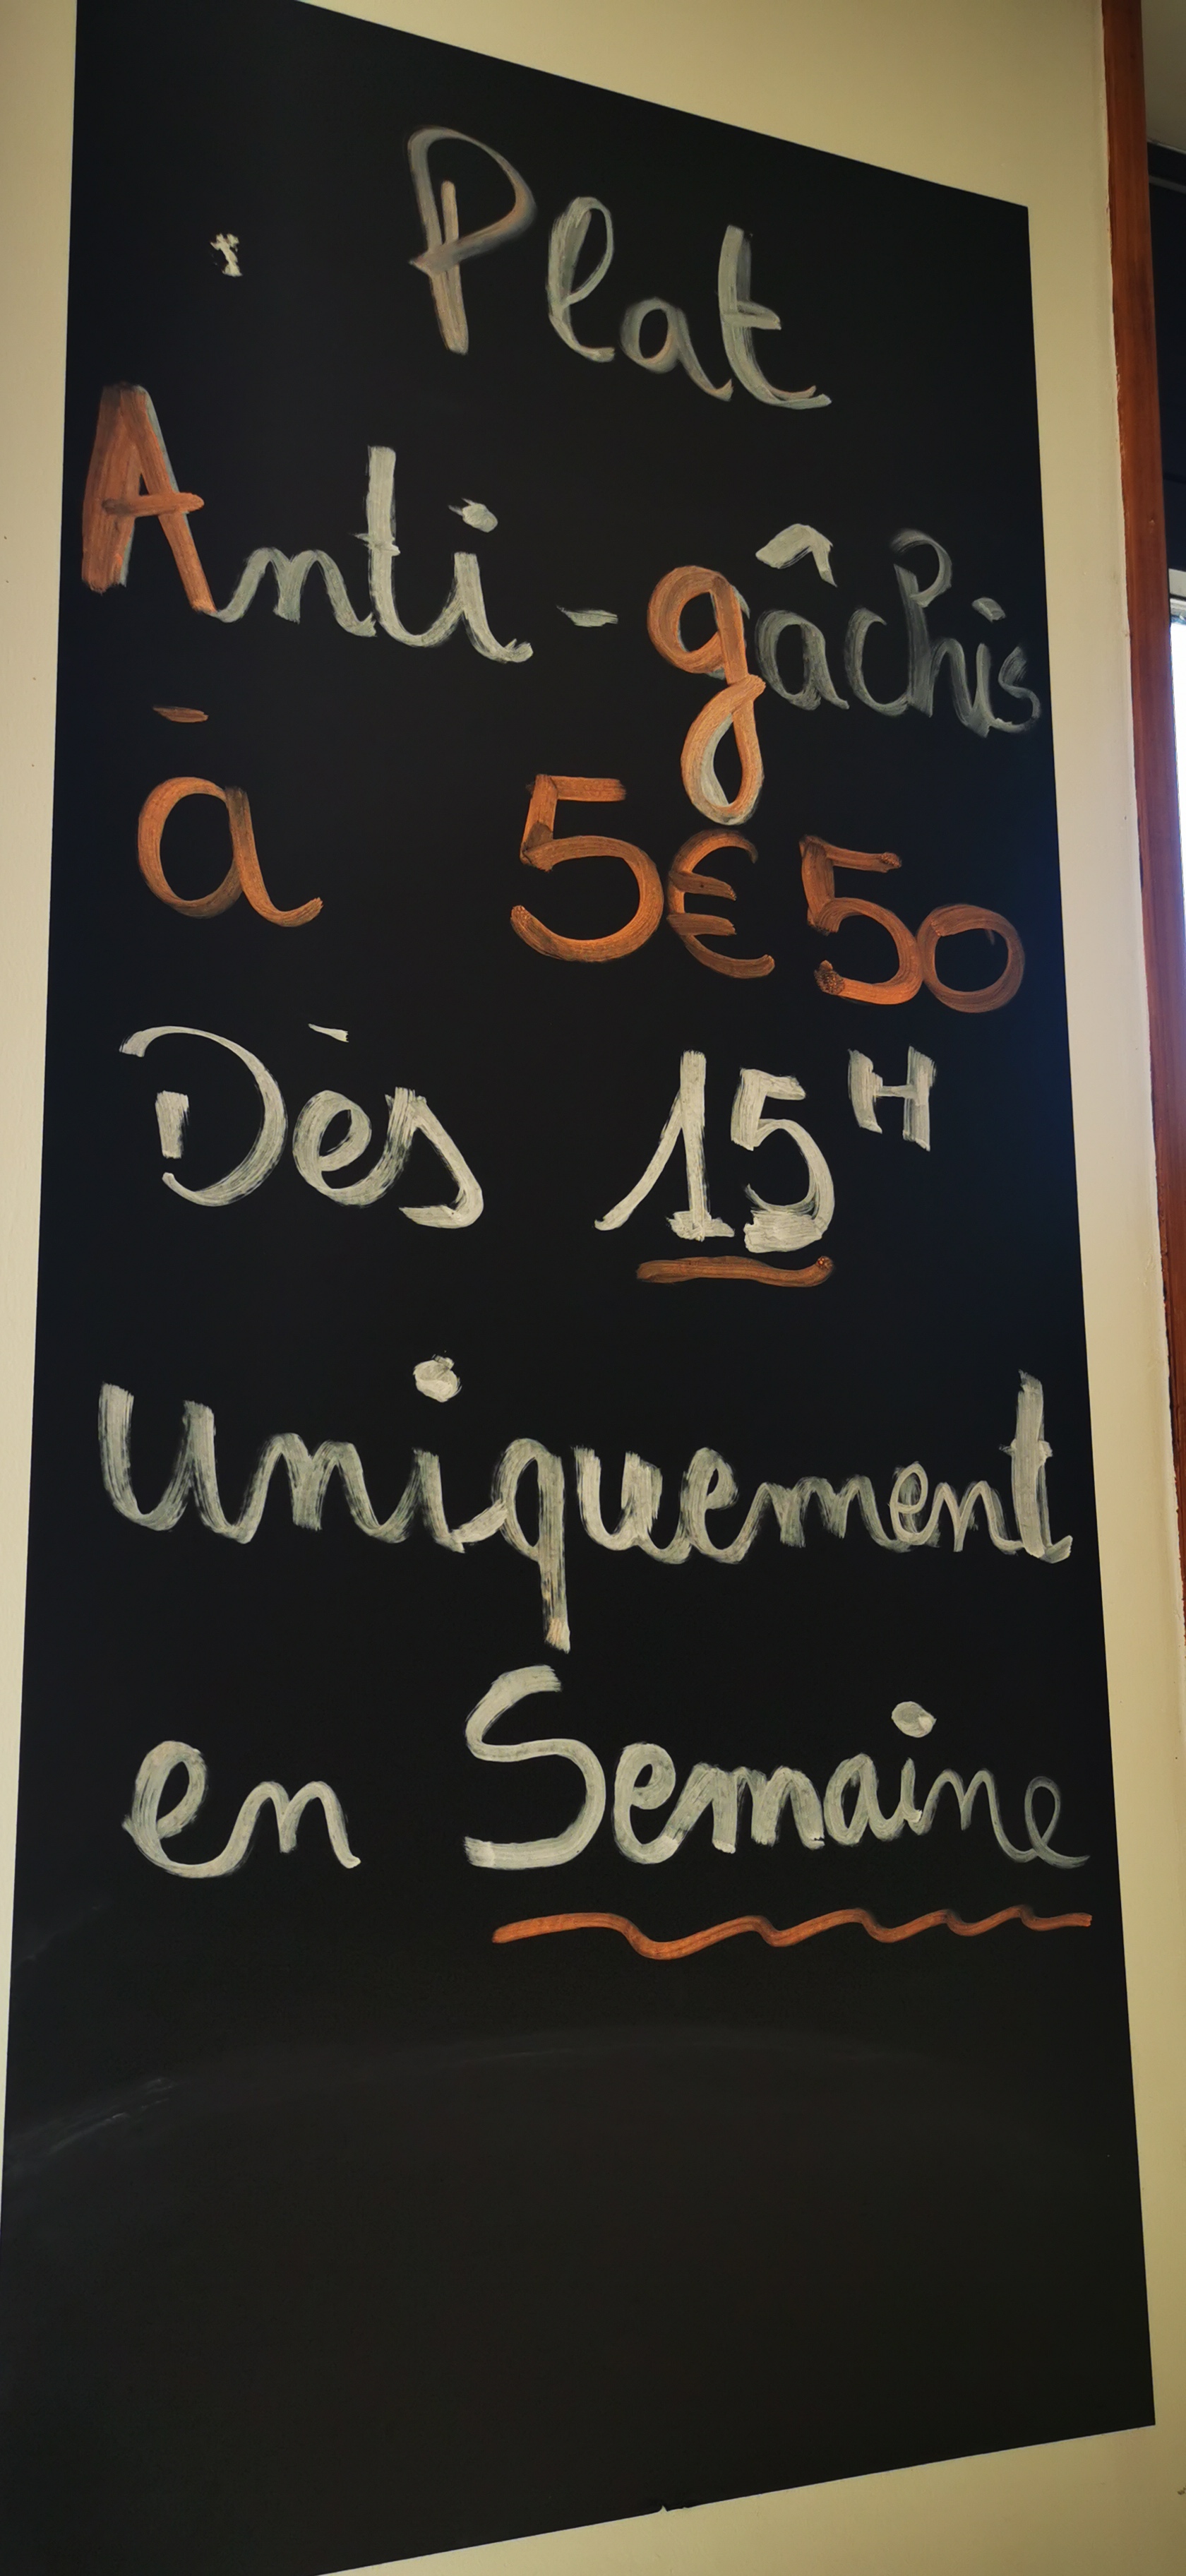 Plat
Anti-gâchis
à 5€50
Dès 15H
uniquement
en Semaine